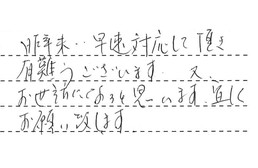 昨年末‥早速対応して頂き
有難うございます. 又.
お世話になると思います. 宜しく
お願い致します